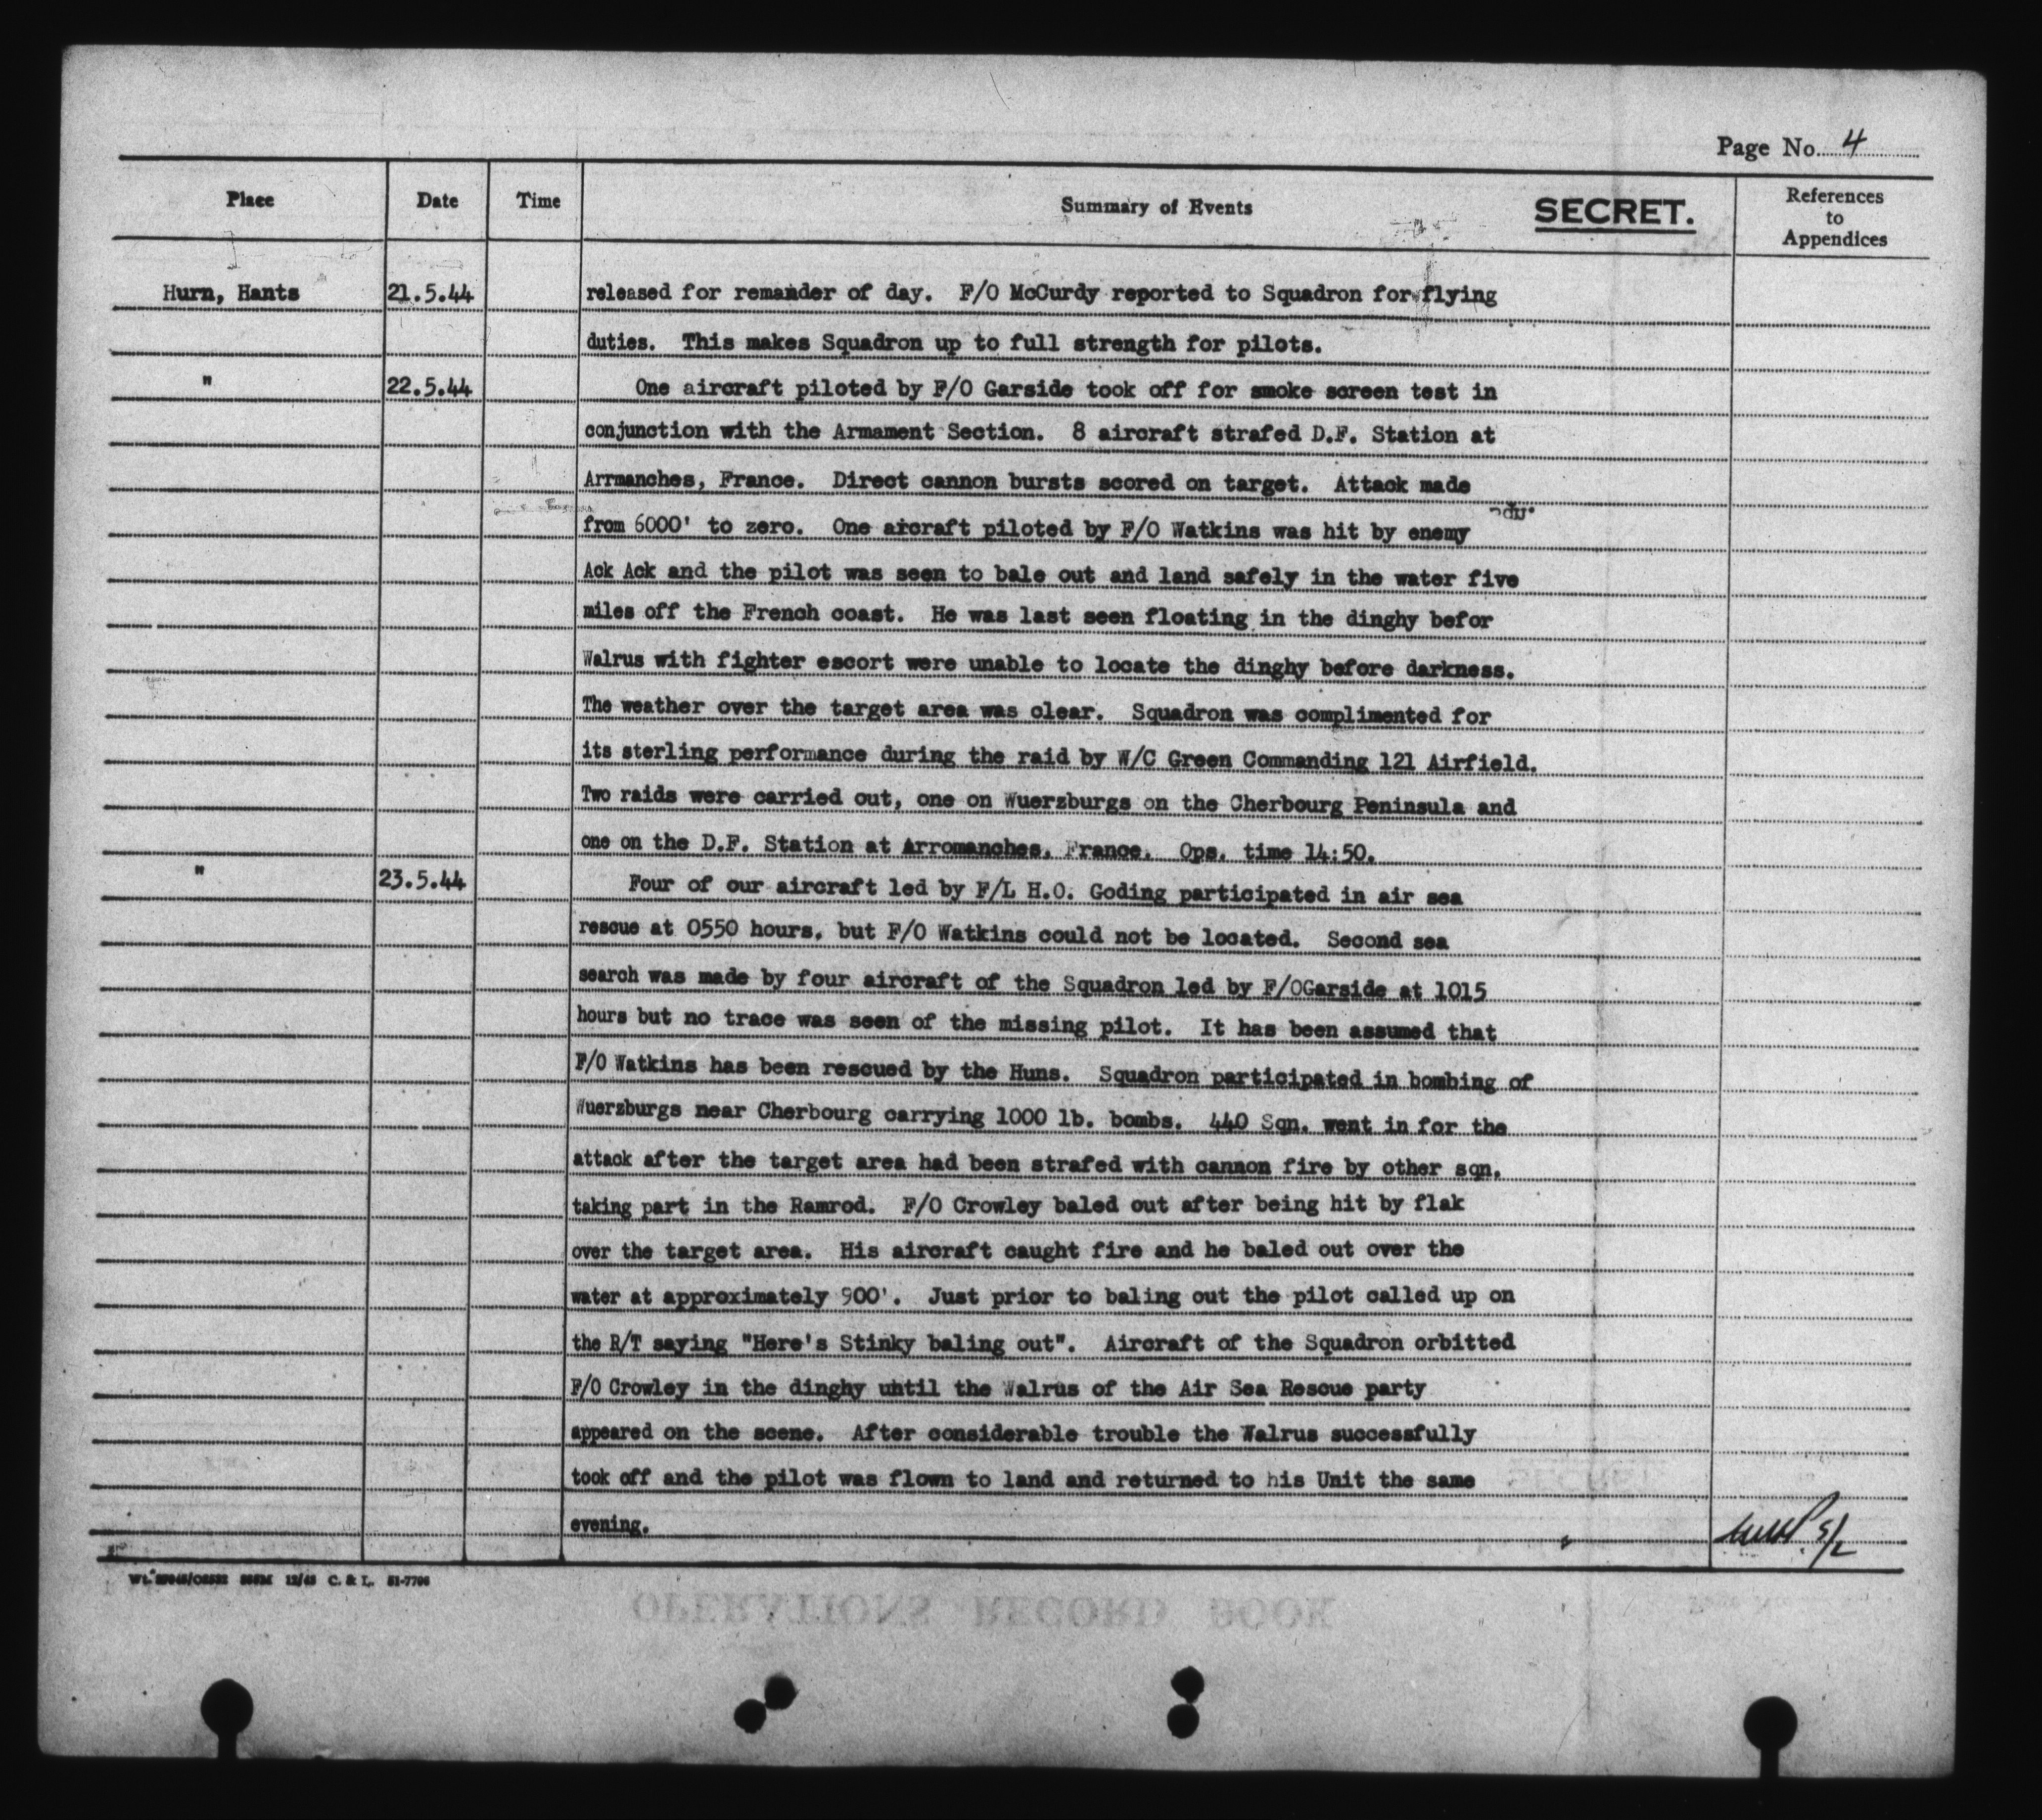 Page No. 4
Place Date Time Summary of Events SECRET. References to Appendices
Hurn, Hants 21.5.44 released for remander of day. F/O McCurdy reported to Squadron for flying
duties. This makes Squadron up to full strength for pilots.
" 22.5.44 One aircraft piloted by F/O Garside took off for smoke screen test in
conjunction with the Armament Section. 8 aircraft strafed D.F. Station at
Arrmanches, France. Direct cannon bursts scored on target. Attack made
from 6000' to zero. One arcraft piloted by F/O Watkins was hit by enemy
Ack Ack and the pilot was seen to bale out and land safely in the water five
miles off the French coast. He was last seen floating in the dinghy befor
Walrus with fighter escort were unable to locate the dinghy before darkness.
The weather over the target area was clear. Squadron was complimented for
its sterling performance during the raid by W/C Green Commanding 121 Airfield.
Two raids were carried out, one on Wuerzburgs on the Cherbourg Peninsula and
one on the D.F. Station at Arromanches, France. Ops. time 14:50.
" 23.5.44 Four of our aircraft led by F/L H.O. Goding participated in air sea
rescue at 0550 hours, but F/O Watkins could not be located. Second sea
search was made by four aircraft of the Squadron led by F/OGarside at 1015
hours but no trace was seen of the missing pilot. It has been assumed that
F/O Watkins has been rescued by the Huns. Squadron participated in bombing of
Wuerzburgs near Cherbourg carrying 1000 lb. bombs. 440 Sqn. went in for the
attack after the target area had been strafed with cannon fire by other sqn.
taking part in the Ramrod. F/O Crowley baled out after being hit by flak
over the target area. His aircraft caught fire and he baled out over the
water at approximately 900'. Just prior to baling out the pilot called up on
the R/T saying "Here's Stinky baling out". Aircraft of the Squadron orbitted
F/O Crowley in the dinghy until the Walrus of the Air Sea Rescue party
appeared on the scene. After considerable trouble the Walrus successfully
took off and the pilot was flown to land and returned to his Unit the same
evening.
C. & L. 51-7796
OPERATIONS RECORD BOOK